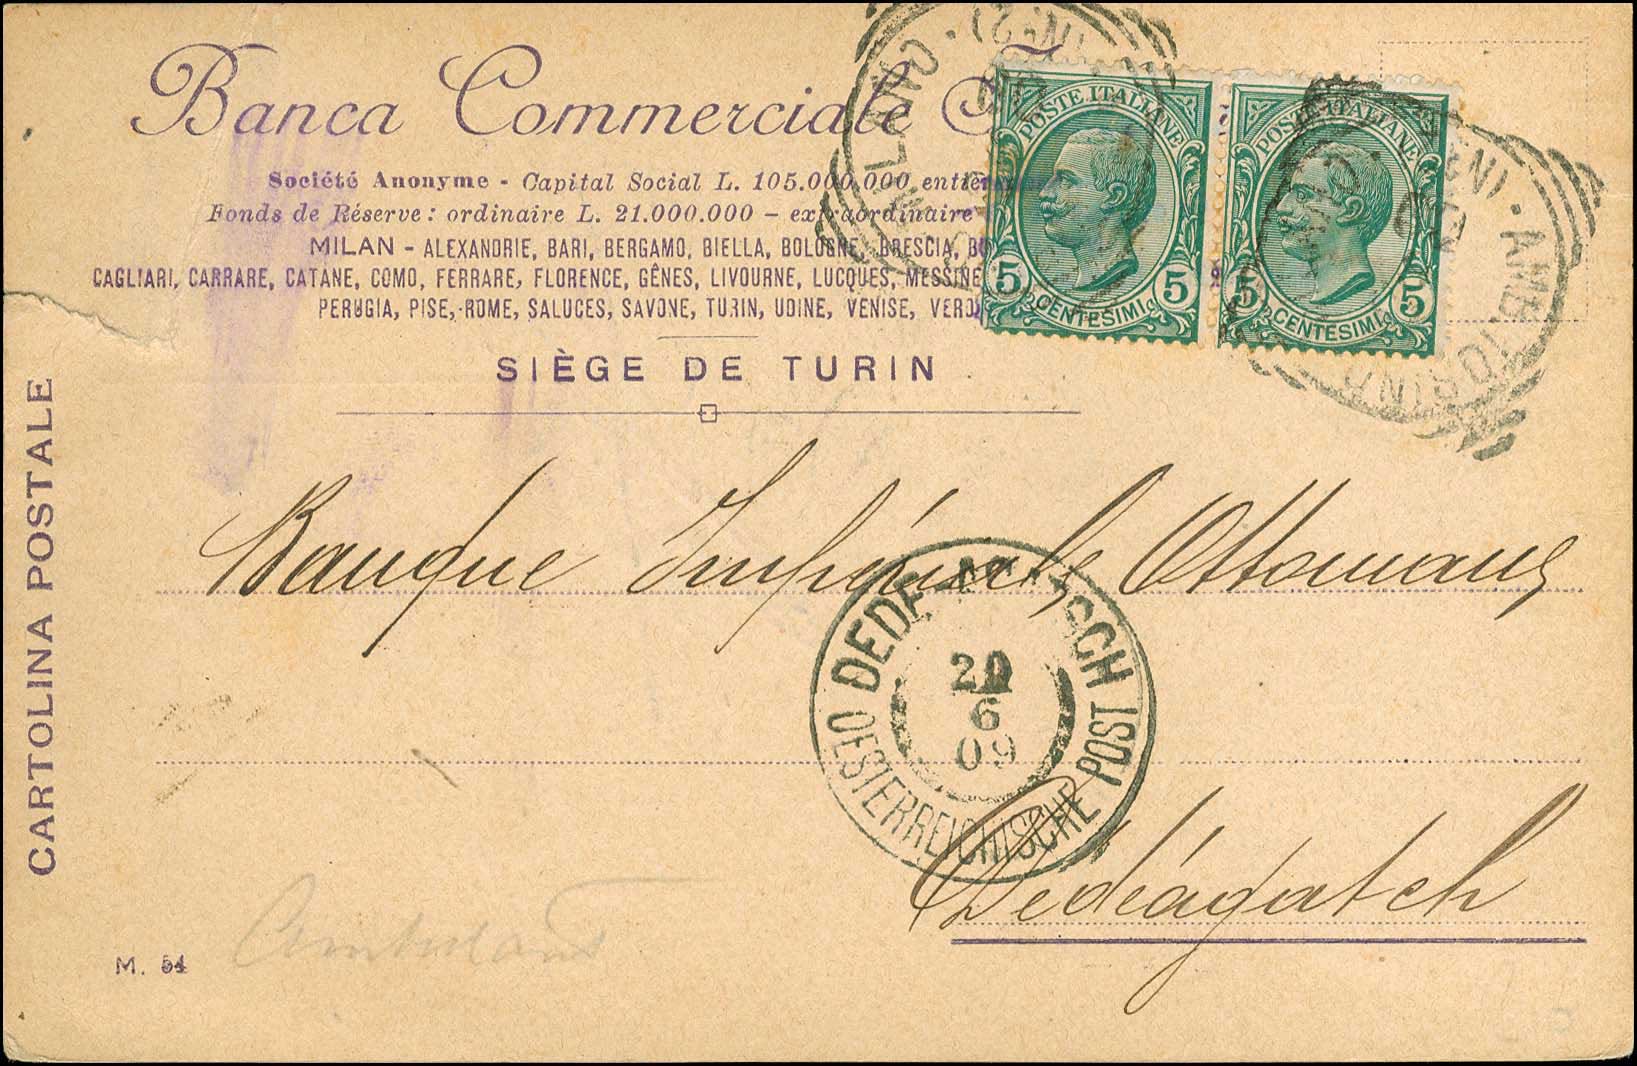 Banca Commerciale
Société Anonyme - Capital Social L. 105.000.000
Fonds de Réserve : ordinaire L. 21.000.000 - extraordinaire
MILAN - ALEXANDRIE, BARI, BERGAMO, BIELLA, BOLOGNE, BRESCIA,
CAGLIARI, CARRARE, CATANE, COMO, FERRARE, FLORENCE, GÊNES, LIVOURNE, LUCQUES, MESSINE
PERUGIA, PISE, ROME, SALUCES, SAVONE, TURIN, UDINE, VENISE,
SIÈGE DE TURIN
POSTE ITALIANE
5 CENTESIMI 5
POSTE ITALIANE
5 CENTESIMI 5
MILANO
CARTOLINA POSTALE
Banque Impériale Ottomane
DEDE AGATSCH
20
6
09
OESTERREICHISCHE POST
Dédéagatch
M. 54